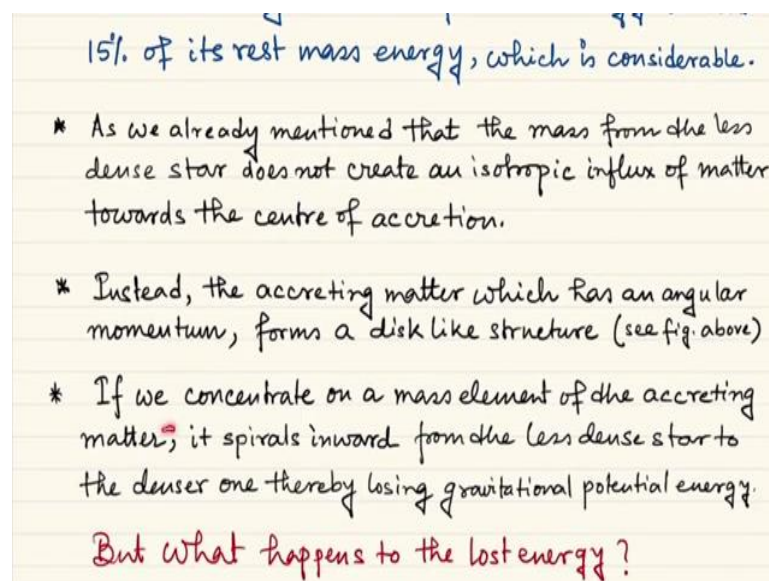 15% of its rest mass energy, which is considerable.
* As we already mentioned that the mass from the less
dense star does not create an isotropic influx of matter
towards the centre of accretion.
* Instead, the accreting matter which has an angular
momentum, forms a disk like structure (see fig. above)
* If we concentrate on a mass element of the accreting
matter, it spirals inward from the less dense star to
the denser one thereby losing gravitational potential energy.
But what happens to the lost energy?